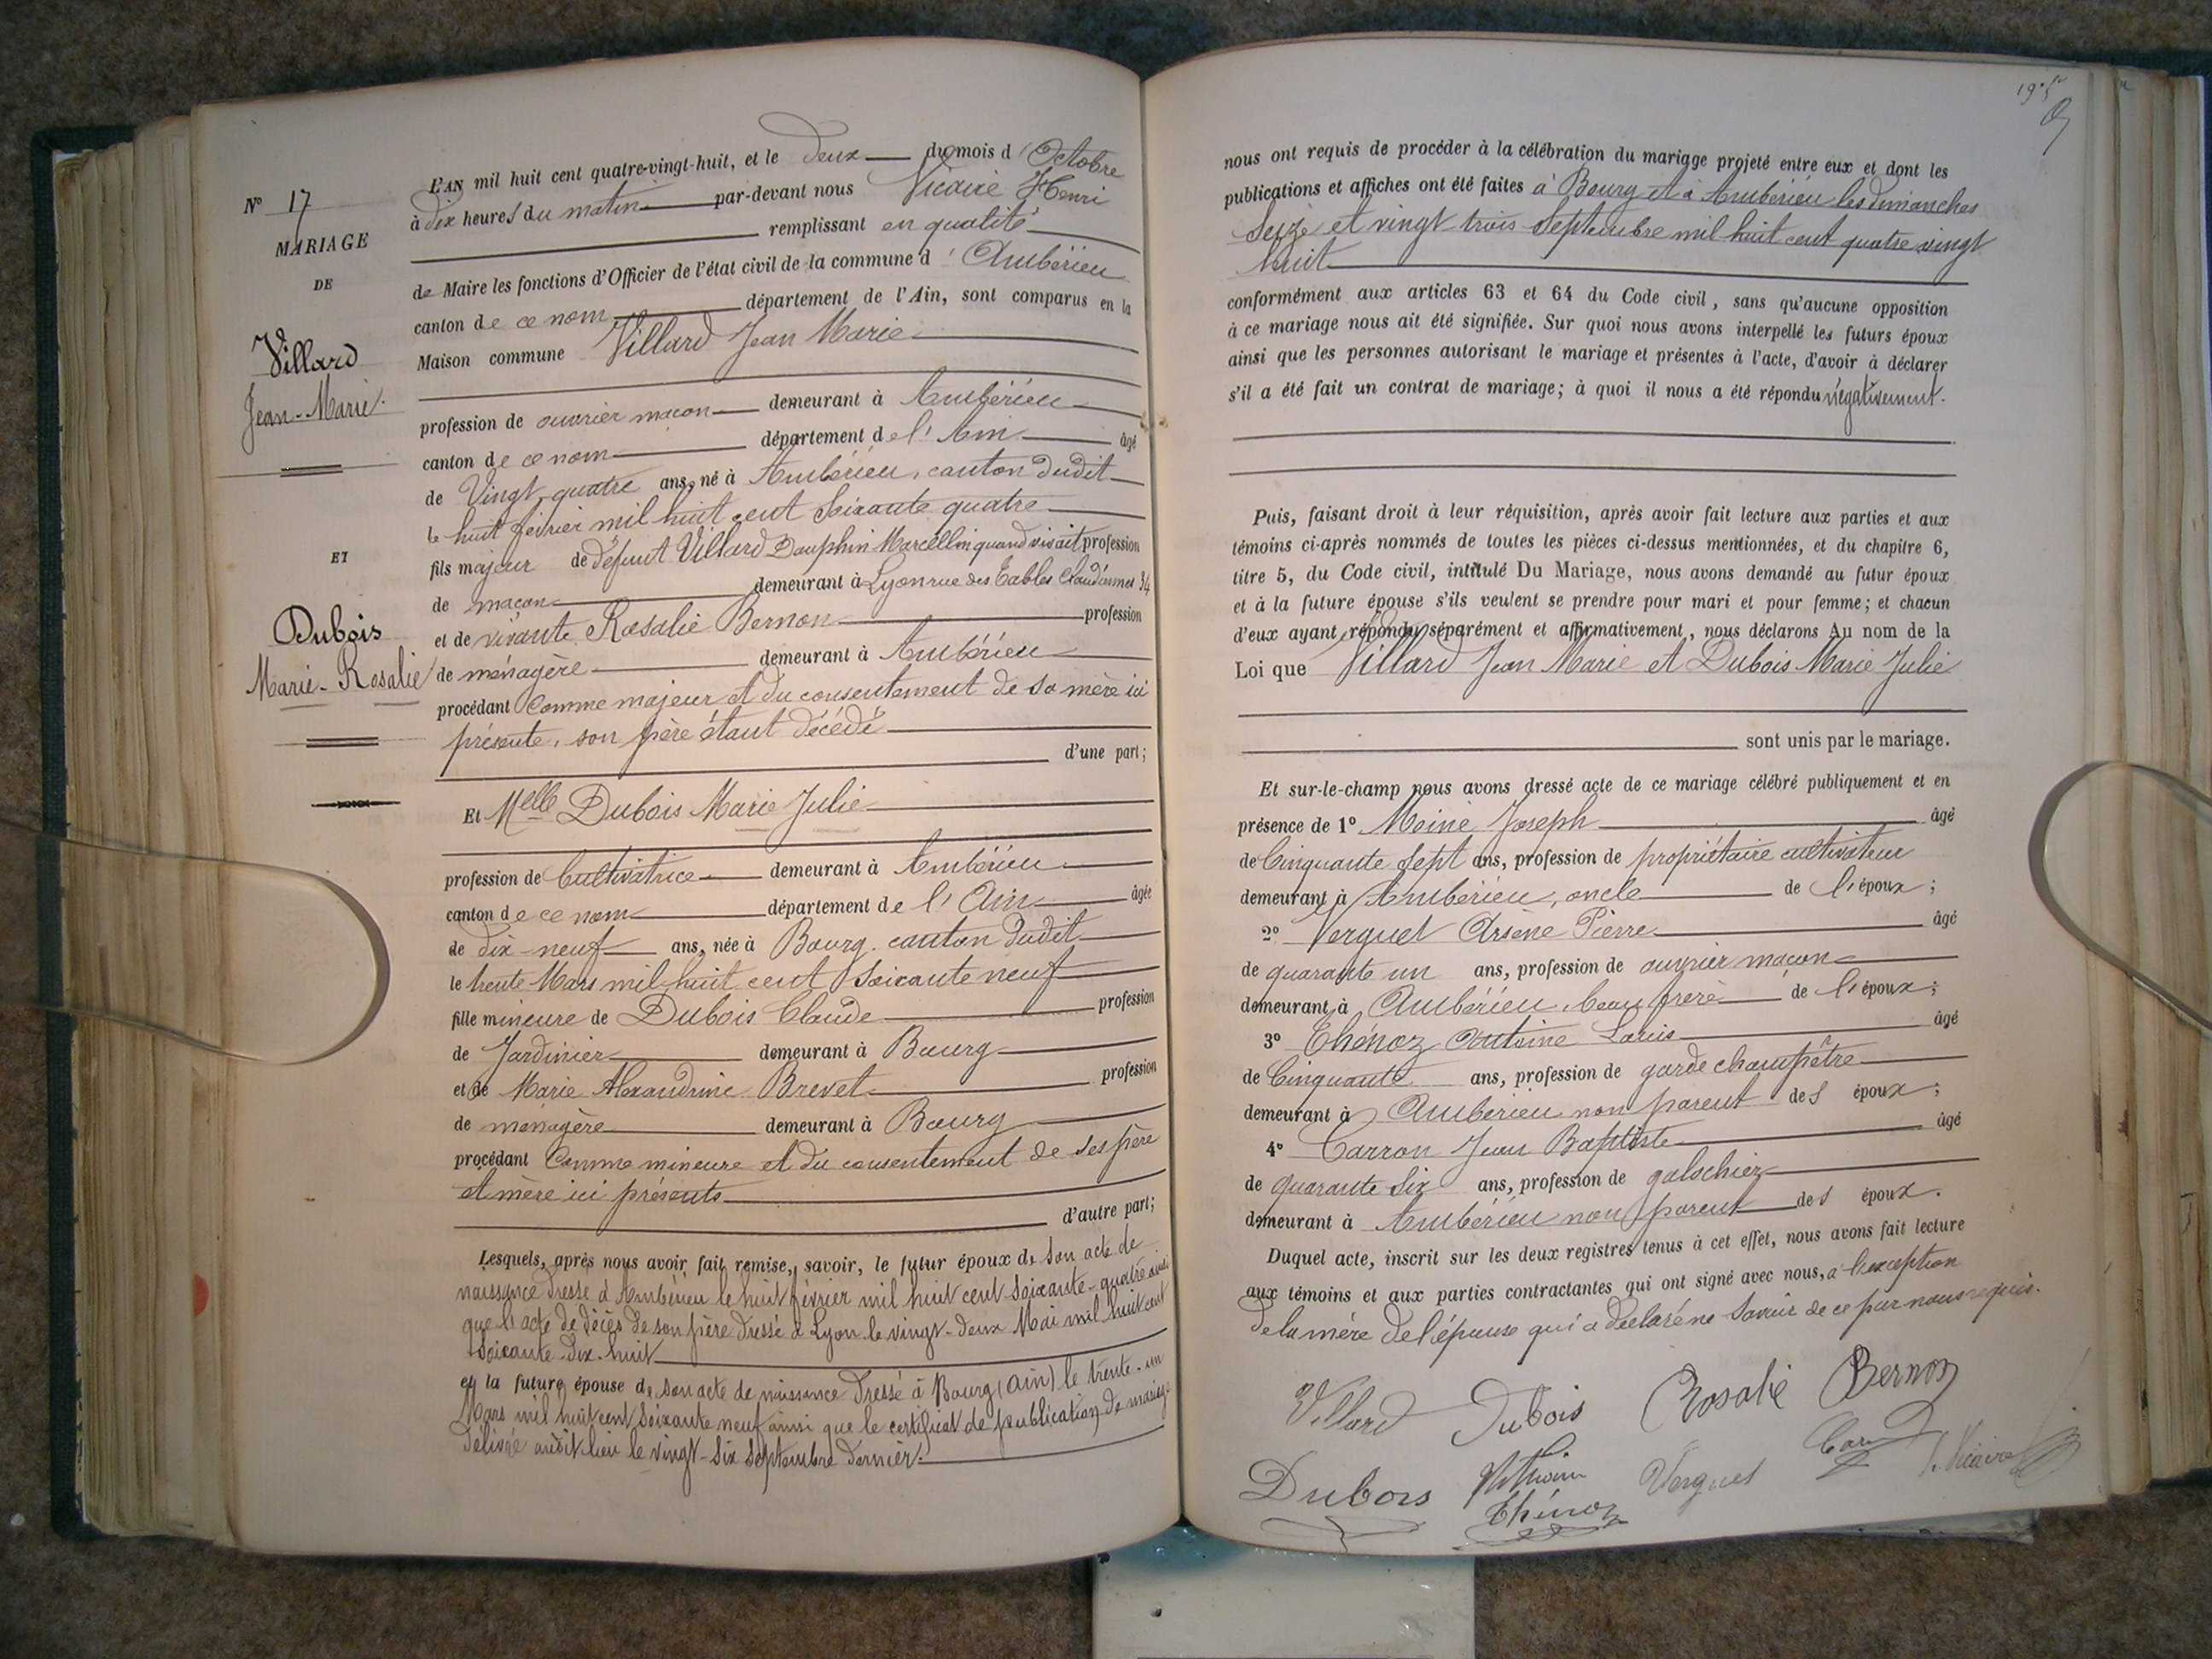 N° 17
MARIAGE
DE
Villard
Jean-Marie.
ET
Dubois
Marie-Rosalie
L'AN mil huit cent quatre-vingt-huit, et le deux du mois d'Octobre
à dix heures du matin par-devant nous Vicaire Henri
remplissant en qualité
de Maire les fonctions d'Officier de l'état civil de la commune d'Ambérieu
canton de ce nom département de l'Ain, sont comparus en la
Maison commune Villard Jean Marie
profession de ouvrier maçon demeurant à Ambérieu
canton de ce nom département de l'Ain âgé
de Vingt quatre ans, né à Ambérieu, canton dudit
le huit février mil huit cent soixante quatre
fils majeur de défunt Villard Dauphin Marcellin quand vivait profession
de maçon demeurant à Lyon rue des Tables Claudiennes 34
et de vivante Rosalie Bernon profession
de ménagère demeurant à Ambérieu
procédant Comme majeur et du consentement de sa mère ici
présente, son père étant décédé
d'une part;
Et Melle Dubois Marie Julie
profession de Cultivatrice demeurant à Ambérieu
canton de ce nom département de l'Ain âgée
de dix-neuf ans, née à Bourg. canton dudit
le trente Mars mil huit cent soixante neuf
fille mineure de Dubois Claude profession
de Jardinier demeurant à Bourg
et de Marie Alexandrine Brevet profession
de ménagère demeurant à Bourg
procédant Comme mineure et du consentement de ses père
et mère ici présents
d'autre part;
Lesquels, après nous avoir fait remise, savoir, le futur époux de son acte de
naissance dressé à Ambérieu le huit février mil huit cent soixante-quatre ainsi
que l'acte de décès de son père dressé à Lyon le vingt-deux Mai mil huit cent
soixante-dix-huit
et la future épouse de son acte de naissance dressé à Bourg (Ain) le trente-un
Mars mil huit cent soixante neuf ainsi que le certificat de publication de mariage
délivré audit lieu le vingt-six septembre dernier.
nous ont requis de procéder à la célébration du mariage projeté entre eux et dont les
publications et affiches ont été faites à Bourg et à Ambérieu les dimanches
seize et vingt trois septembre mil huit cent quatre vingt
huit
conformément aux articles 63 et 64 du Code civil, sans qu'aucune opposition
à ce mariage nous ait été signifiée. Sur quoi nous avons interpellé les futurs époux
ainsi que les personnes autorisant le mariage et présentes à l'acte, d'avoir à déclarer
s'il a été fait un contrat de mariage; à quoi il nous a été répondu négativement.
Puis, faisant droit à leur réquisition, après avoir fait lecture aux parties et aux
témoins ci-après nommés de toutes les pièces ci-dessus mentionnées, et du chapitre 6,
titre 5, du Code civil, intitulé Du Mariage, nous avons demandé au futur époux
et à la future épouse s'ils veulent se prendre pour mari et pour femme; et chacun
d'eux ayant répondu séparément et affirmativement, nous déclarons Au nom de la
Loi que Villard Jean Marie et Dubois Marie Julie
sont unis par le mariage.
Et sur-le-champ nous avons dressé acte de ce mariage célébré publiquement et en
présence de 1° Moine Joseph âgé
de Cinquante sept ans, profession de propriétaire cultivateur
demeurant à Ambérieu, oncle de l'époux;
2° Verguet Arsène Pierre âgé
de quarante un ans, profession de ouvrier maçon
demeurant à Ambérieu, beau frère de l'époux;
3° Thénoz Antoine Louis âgé
de Cinquante ans, profession de garde champêtre
demeurant à Ambérieu non parent des époux;
4° Carron Jean Baptiste âgé
de quarante six ans, profession de galochier
demeurant à Ambérieu non parent des époux.
Duquel acte, inscrit sur les deux registres tenus à cet effet, nous avons fait lecture
aux témoins et aux parties contractantes qui ont signé avec nous, à l'exception
de la mère de l'épouse qui a déclaré ne savoir de ce par nous requis.
Villard Dubois Rosalie Bernon
Dubois Thénoz Verguet H. Vicaire